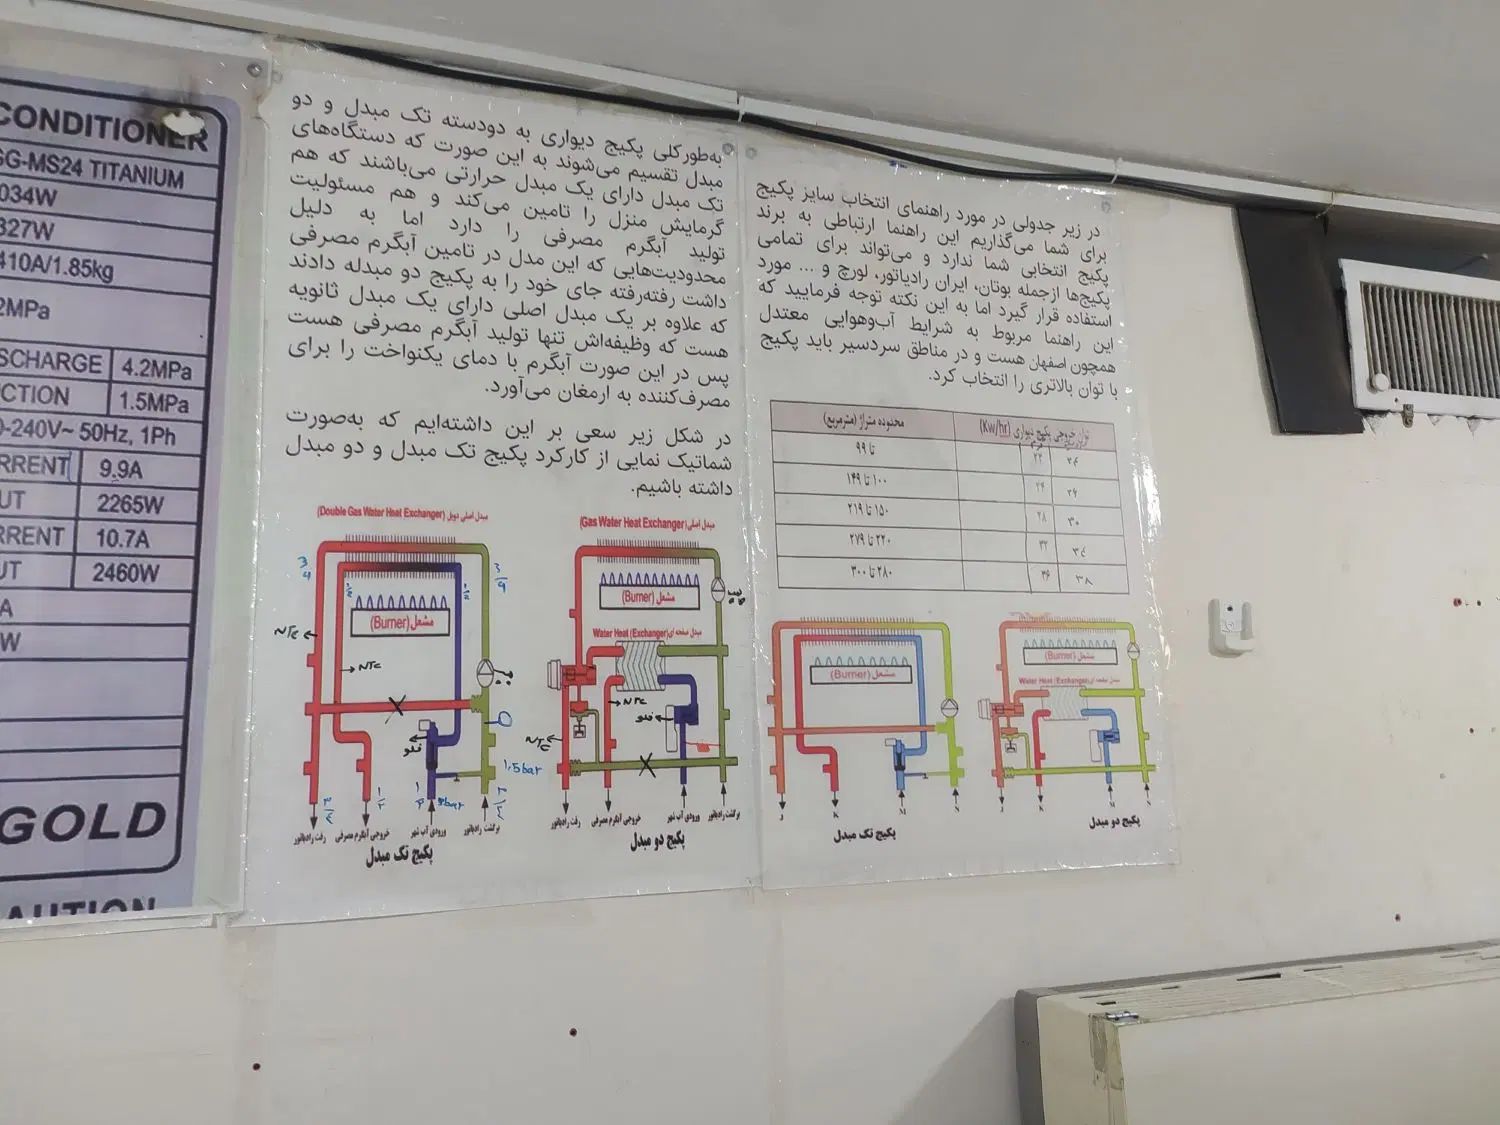 CONDITIONER
GG-MS24 TITANIUM
034W
327W
410A/1.85kg
2MPa
SCHARGE 4.2MPa
CTION 1.5MPa
0-240V~ 50Hz, 1Ph
RRENT 9.9A
UT 2265W
RRENT 10.7A
UT 2460W
A
W
GOLD
AUTION
به‌طورکلی پکیج دیواری به دودسته تک مبدل و دو
مبدل تقسیم می‌شوند به این صورت که دستگاه‌های
تک مبدل دارای یک مبدل حرارتی می‌باشند که هم
گرمایش منزل را تامین می‌کند و هم مسئولیت
تولید آبگرم مصرفی را دارد اما به دلیل
محدودیت‌هایی که این مدل در تامین آبگرم مصرفی
داشت رفته‌رفته جای خود را به پکیج دو مبدله دادند
که علاوه بر یک مبدل اصلی دارای یک مبدل ثانویه
هست که وظیفه‌اش تنها تولید آبگرم مصرفی هست
پس در این صورت آبگرم با دمای یکنواخت را برای
مصرف‌کننده به ارمغان می‌آورد.
در شکل زیر سعی بر این داشته‌ایم که به‌صورت
شماتیک نمایی از کارکرد پکیج تک مبدل و دو مبدل
داشته باشیم.
مبدل اصلی دوپل (Double Gas Water Heat Exchanger)
۳/۴
۳/۴
۱/۲
۱/۲
مشعل (Burner)
NTC
NTC
پمپ
فلو
۳/۴
۱/۲
۱/۲
3bar
1,5bar
۳/۴
رفت رادیاتور
خروجی آبگرم مصرفی
ورودی آب شهر
برگشت رادیاتور
پکیج تک مبدل
مبدل اصلی (Gas Water Heat Exchanger)
مشعل (Burner)
پمپ
مبدل صفحه ای (Water Heat Exchanger)
NTC
فلو
NTC
رفت رادیاتور
خروجی آبگرم مصرفی
ورودی آب شهر
برگشت رادیاتور
پکیج دو مبدل
در زیر جدولی در مورد راهنمای انتخاب سایز پکیج
برای شما می‌گذاریم این راهنما ارتباطی به برند
پکیج انتخابی شما ندارد و می‌تواند برای تمامی
پکیج‌ها ازجمله بوتان، ایران رادیاتور، لورچ و ... مورد
استفاده قرار گیرد اما به این نکته توجه فرمایید که
این راهنما مربوط به شرایط آب‌وهوایی معتدل
همچون اصفهان هست و در مناطق سردسیر باید پکیج
با توان بالاتری را انتخاب کرد.
توان خروجی پکیج دیواری (Kw/hr) محدوده متراژ (مترمربع)
۲۴ ۲۲ تا ۹۹
۲۴ ۲۴ ۱۰۰ تا ۱۴۹
۳۰ ۲۸ ۱۵۰ تا ۲۱۹
۳۴ ۳۲ ۲۲۰ تا ۲۷۹
۳۸ ۳۶ ۲۸۰ تا ۳۰۰
مشعل (Burner)
J
K
M
N
پکیج تک مبدل
مشعل (Burner)
مبدل صفحه ای (Water Heat Exchanger)
J
K
M
N
پکیج دو مبدل